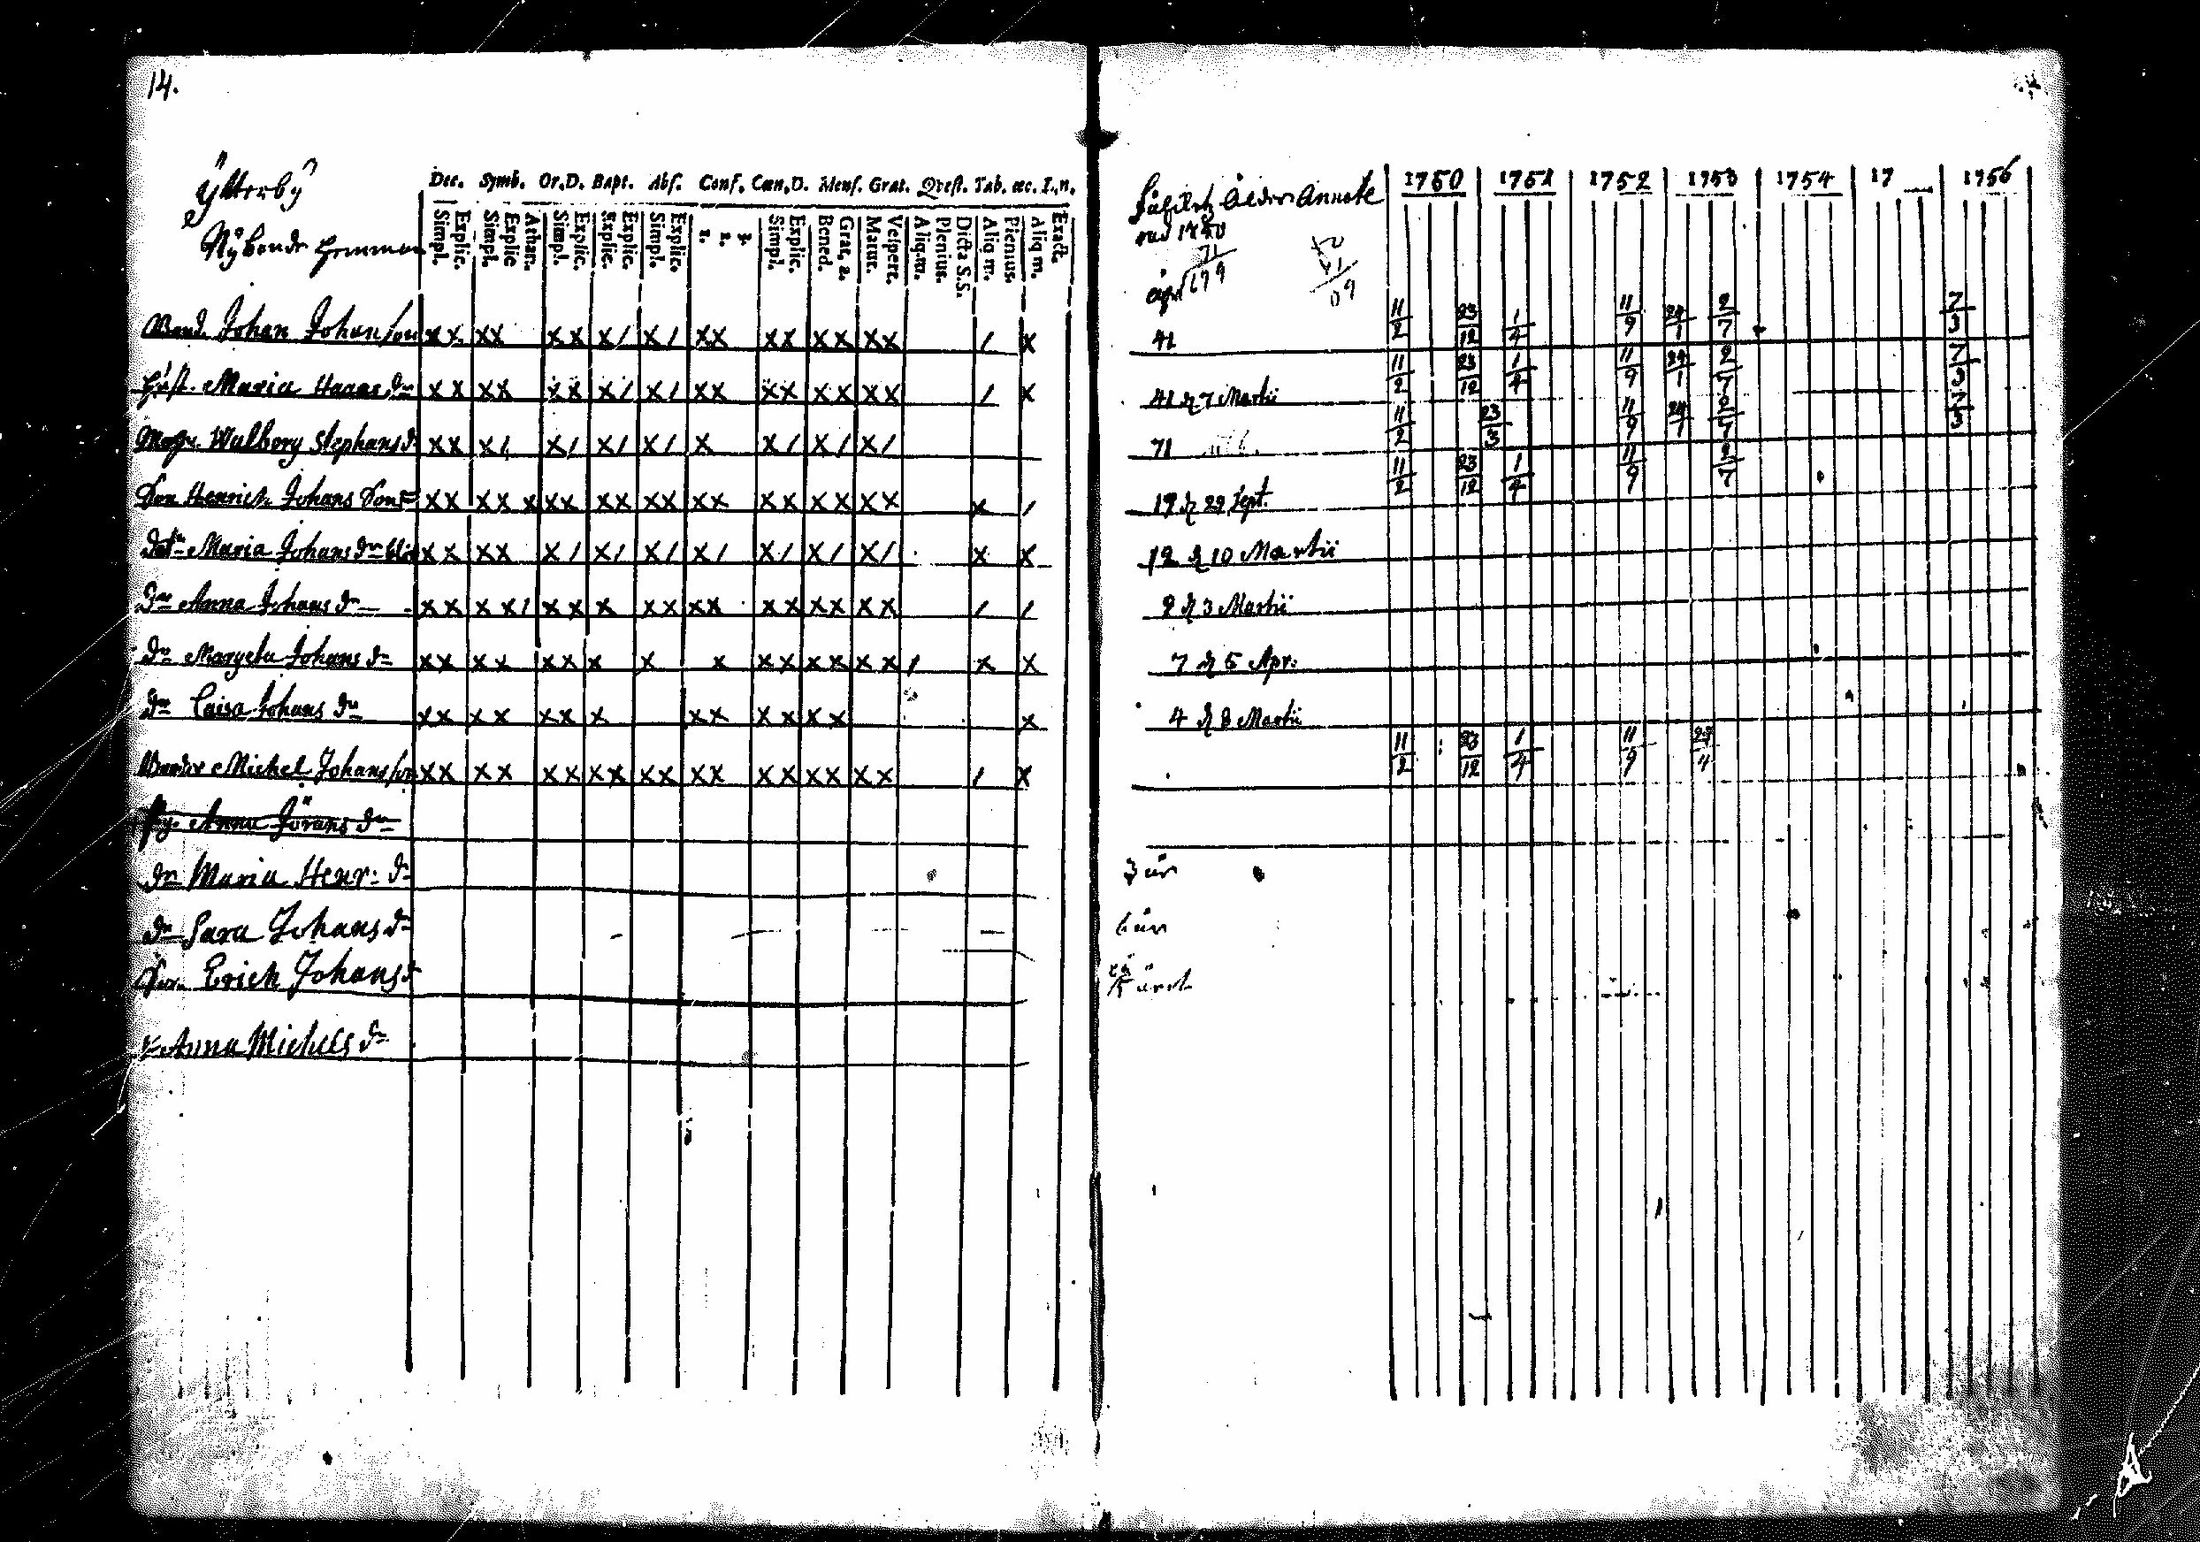 14.
Ytterby
Nybonde hemman
Dec. Symb. Or.D. Bapt. Abs. Conf. Cœn.D. Mens. Grat. Qvest. Tab. œc. L.n.
Simpl. Explic. Simpl. Explic Athan. Simpl. Explic. Explic. Explic. Simpl. Explic. 1. 2. 3. Simpl. Explic. Bened. Grat. 2. Matut. Vespert. Aliq.m. Plenius. Dicta S.S. Aliq m. Plenius. Aliq m. Exact.
Johan Johansson xx xx xx x/ x/ xx xx xx xx / x
Hust. Maria Haans dr xx xx xx x/ x/ xx xx xx xx / x
Walborg Stephans d xx x/ x/ x/ x/ x x/ x/ x/
Son Henrich Johans Son xx xx x xx xx xx xx xx xx xx x /
Maria Johans dr xx xx x/ x/ x/ x/ x/ x/ x/ x x
Dr Anna Johans dr xx xx/ xx x xx xx xx xx xx / /
Dr Margeta Johans dr xx xx xx x x x xx xx xx / x x
Dr Caisa Johans dr xx xx xx x xx xx xx x
Michel Johansson xx xx xx xx xx xx xx xx xx / x
Anna Jörans dr
dr Maria Henr: dr
dr Sara Johans dr
Son Erich Johans
Anna Michels dr
Ålder Annote
1750 1751 1752 1753 1754 17 1756
71
179
41 11/2 23/12 1/4 11/9 24/1 2/7 7/3
41 d 7 Martii 11/2 23/12 1/4 11/9 24/1 2/7 7/3
71 11/2 23/3 11/9 24/1 2/7 7/3
19 d 29 Sept. 11/2 23/12 1/4 11/9 2/7
12 d 10 Martii
9 d 3 Martii
7 d 5 Apr:
4 d 8 Martii
11/2 23/12 1/4 11/9 23/4
3 år
6 år